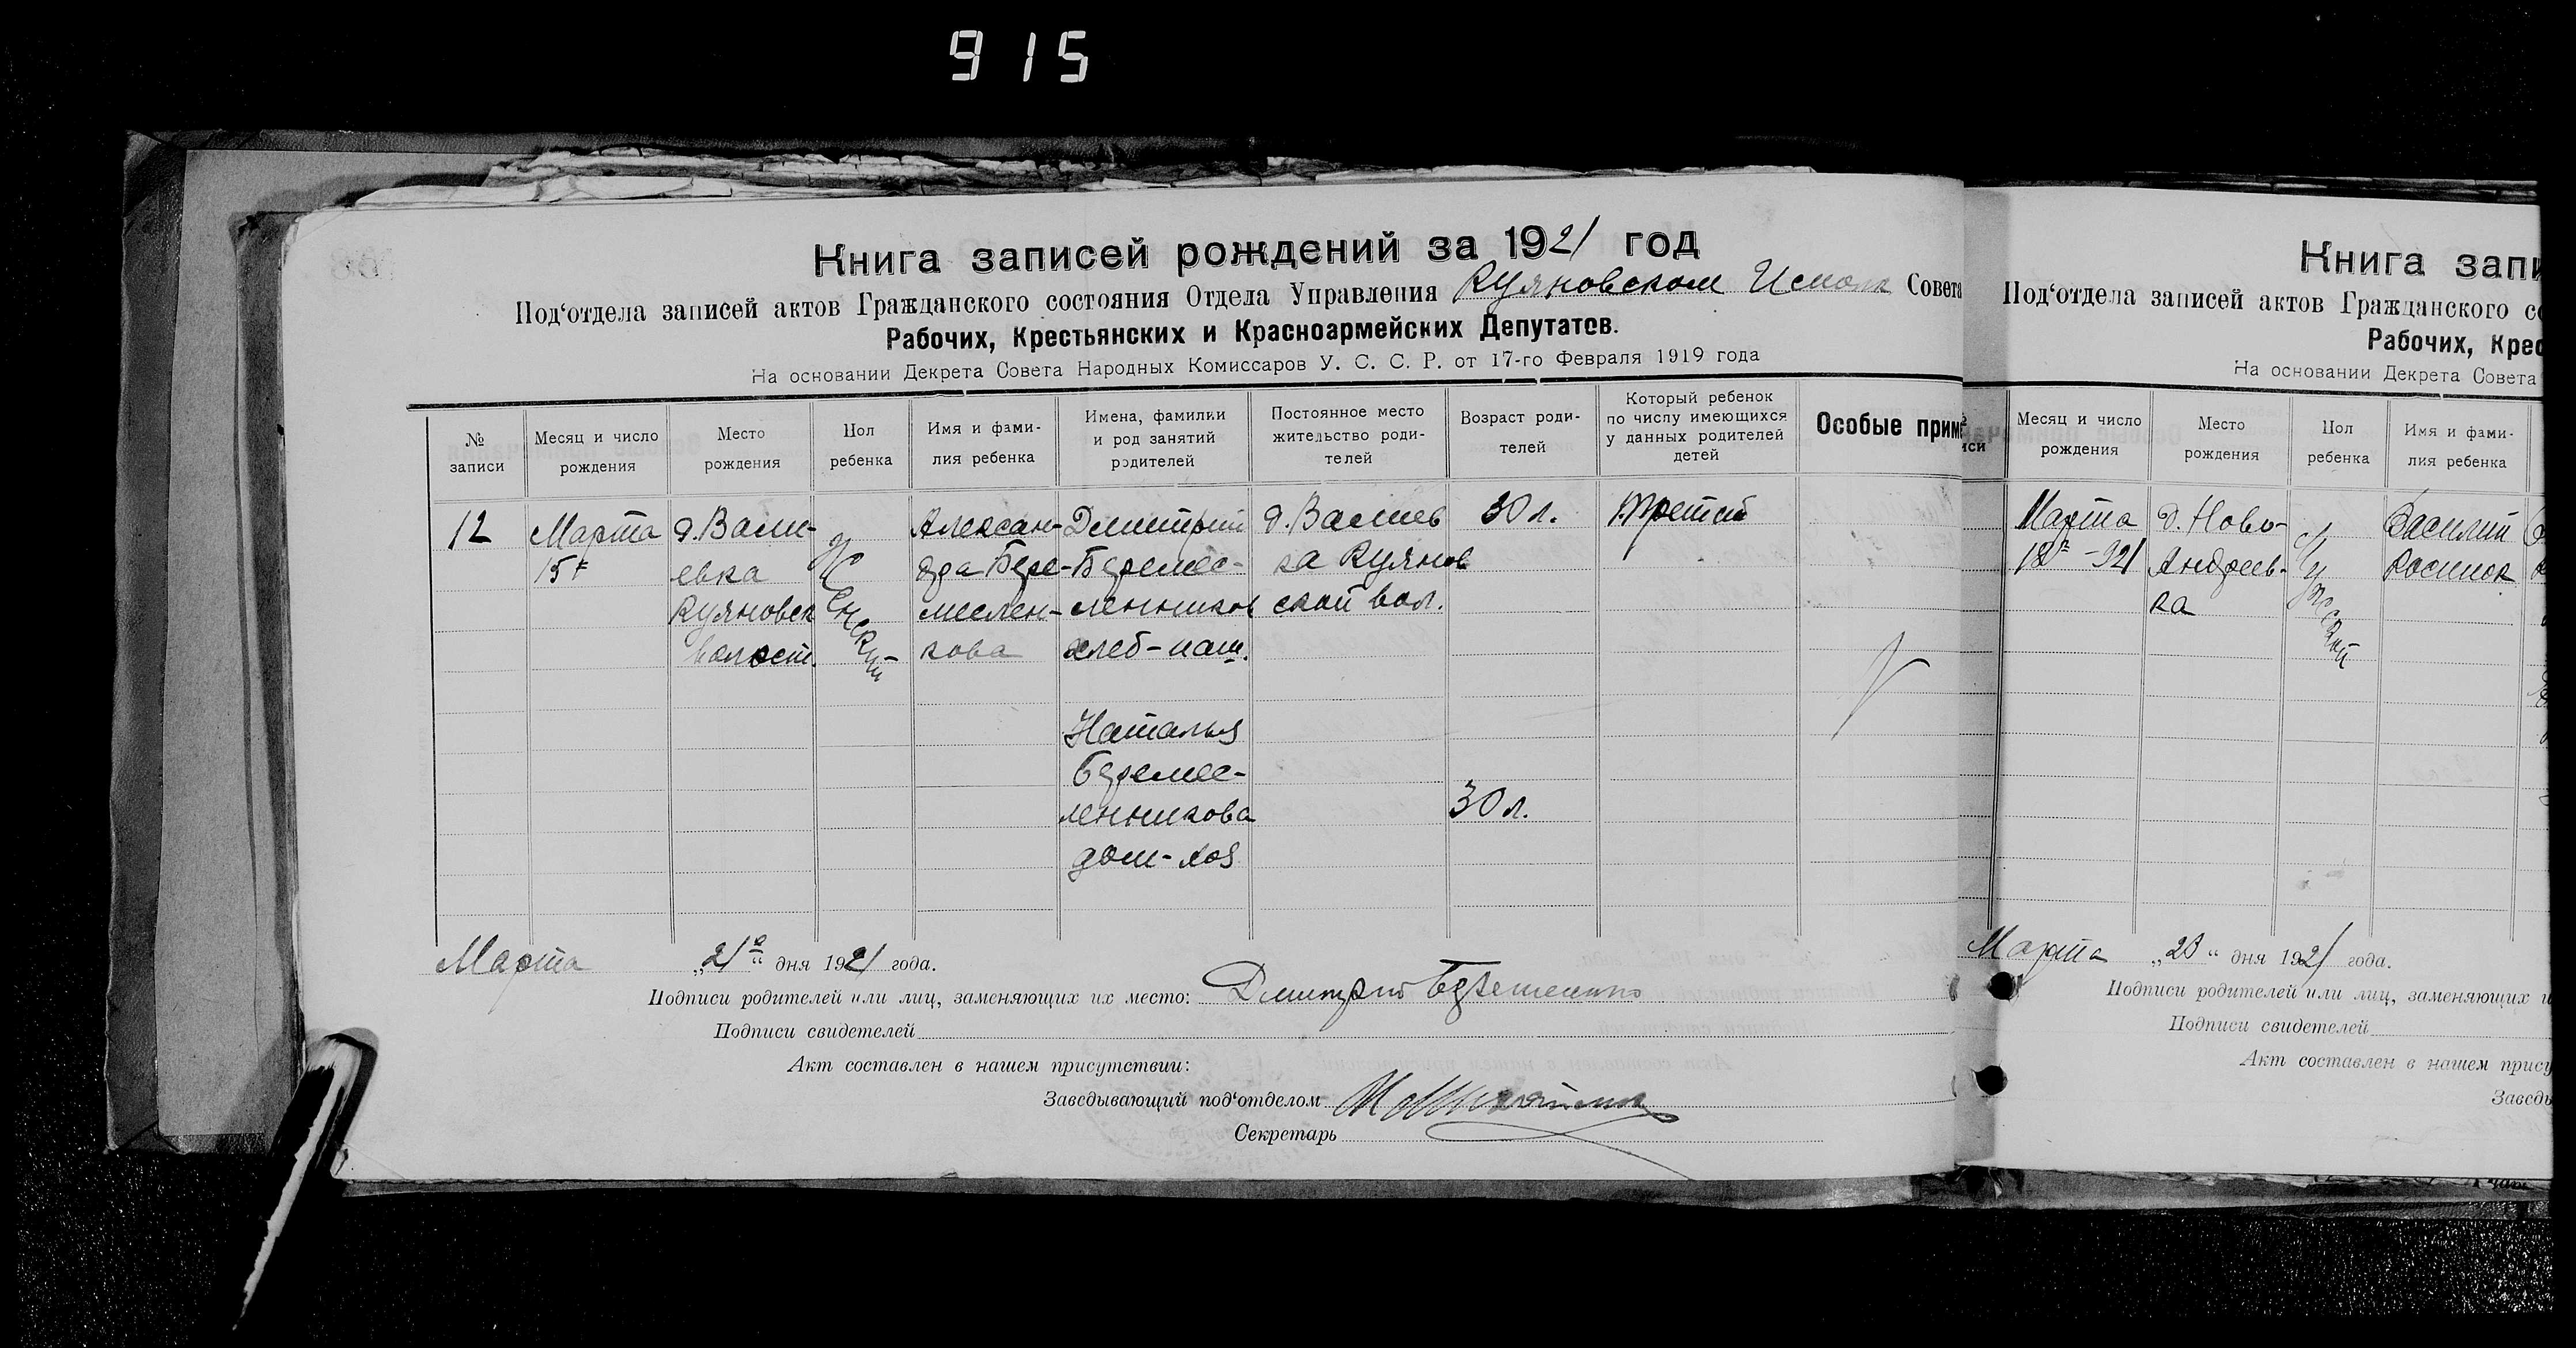 915
Книга записей рождений за 1921 год
Под‘отдела записей актов Гражданского состояния Отдела Управления Куяновском Совета
Рабочих, Крестьянских и Красноармейских Депутатов.
На основании Декрета Совета Народных Комиссаров У. С. С. Р. от 17-го Февраля 1919 года
№ записи
Месяц и число рождения
Место рождения
Пол ребенка
Имя и фами-
лия ребенка
Имена, фамилии
и род занятий
родителей
Постоянное место
жительство роди-
телей
Возраст роди-
телей
Который ребенок
по числу имеющихся
у данных родителей
детей
Особые прим
12
Марта
15
д. Вали-
евка
Куяновск
волост.
Женский
Алексан-
дра Бере-
меслен-
кова
Дмитрий
Беремес-
ленников
хлеб-паш.
Наталья
Беремес-
ленникова
дом-хоз
д. Валиев
ка Куянов
ской вол.
30 л.
30 л.
Третий
Марта „21“ дня 1921 года.
Подписи родителей или лиц, заменяющих их место: Дмитрий
Подписи свидетелей
Акт составлен в нашем присутствии:
Заведывающий под‘отделом
Секретарь
Книга запи
Под‘отдела записей актов Гражданского со
Рабочих, Крес
На основании Декрета Совета
иси
Месяц и число
рождения
Место
рождения
Пол
ребенка
Имя и фами-
лия ребенка
Марта
18 - 921
д. Ново-
Андреев-
ка
Мужской
Василий
Марта „20“ дня 1921 года.
Подписи родителей или лиц, заменяющих и
Подписи свидетелей
Акт составлен в нашем прису
Заведы